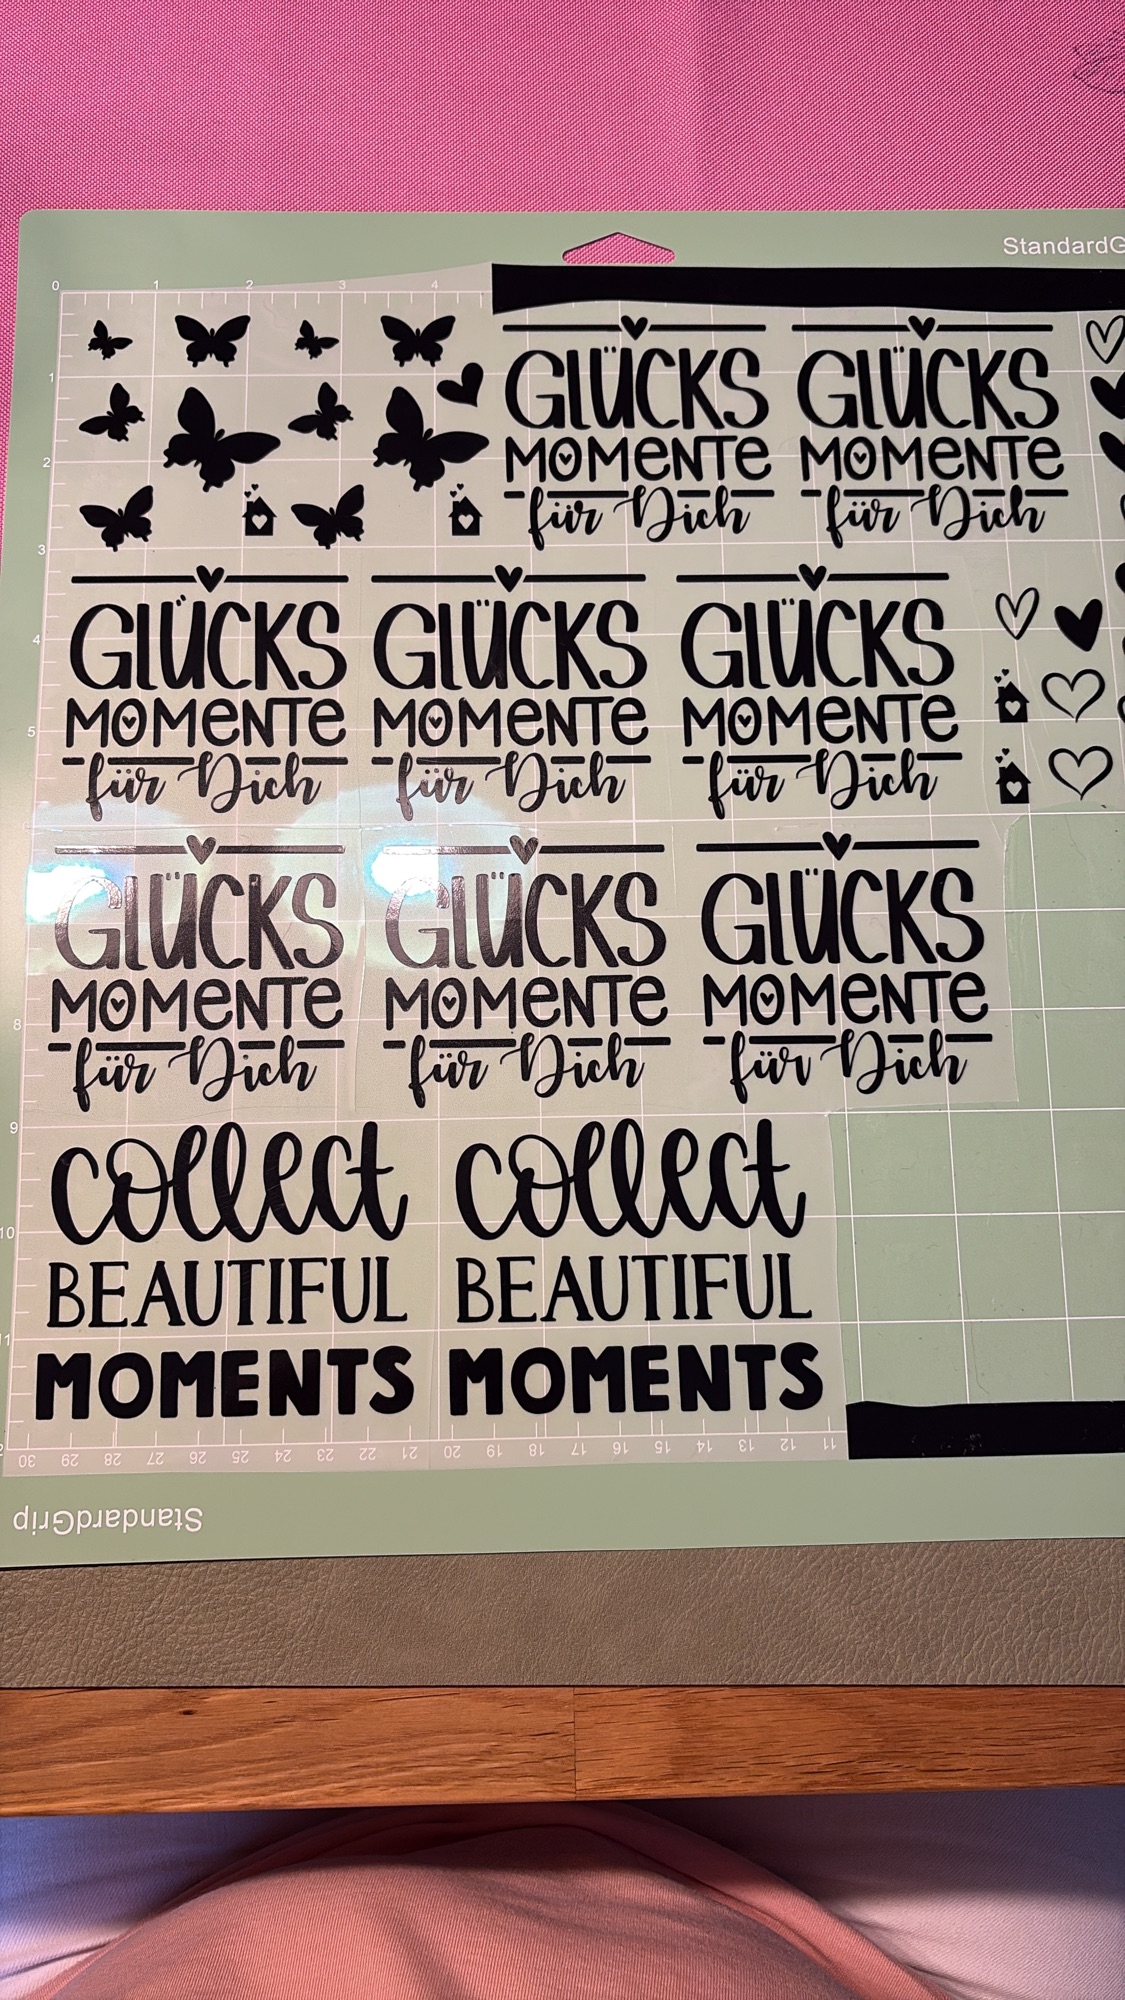 StandardG
0 1 2 3 4
1
GLÜCKS GLÜCKS
MOMENTE MOMENTE
2
für Dich für Dich
3
GLÜCKS GLÜCKS GLÜCKS
4
MOMENTE MOMENTE MOMENTE
5
für Dich für Dich für Dich
GLÜCKS GLÜCKS GLÜCKS
MOMENTE MOMENTE MOMENTE
8
für Dich für Dich für Dich
9
collect collect
10
BEAUTIFUL BEAUTIFUL
11
MOMENTS MOMENTS
30 29 28 27 26 25 24 23 22 21 20 19 18 17 16 15 14 13 12 11
StandardGrip